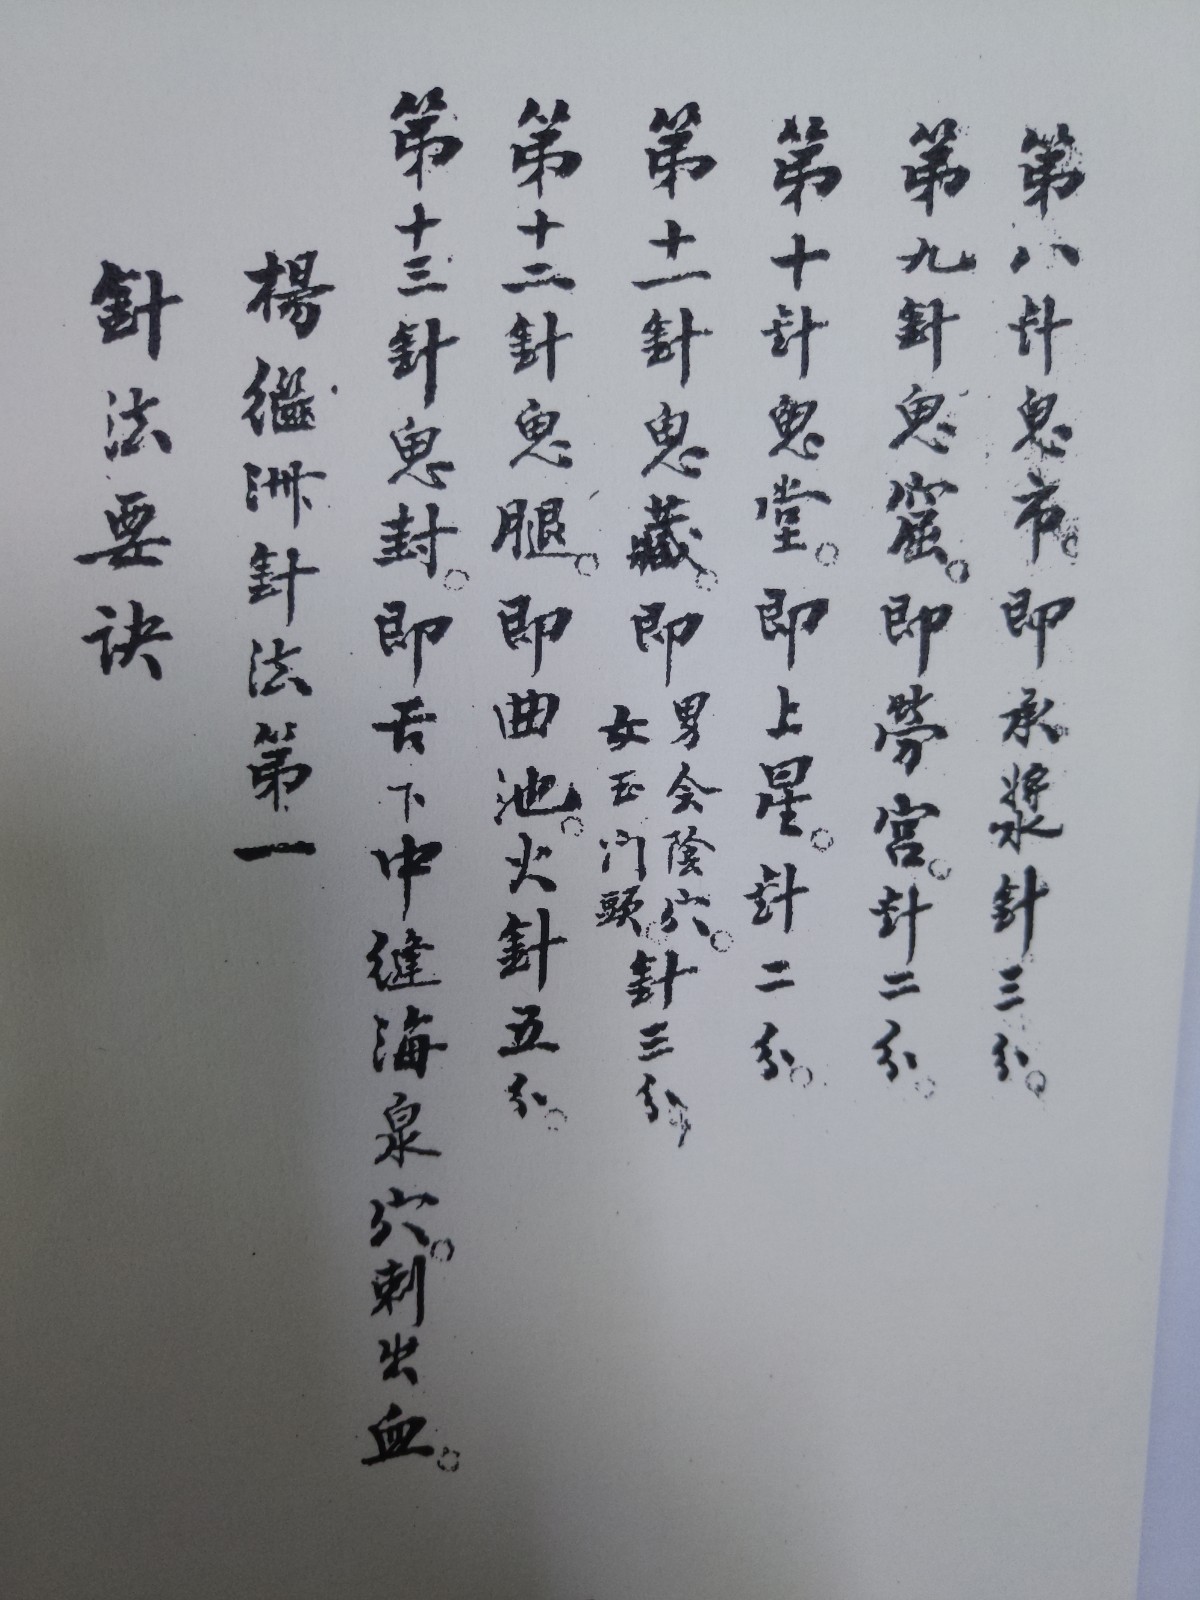 第八針鬼市。即承漿針三分。
第九針鬼窟。即勞宮。針二分。
第十針鬼堂。即上星。針二分。
第十一針鬼藏。即男会陰穴。女玉门頭。針三分
第十二針鬼腿。即曲池。火針五分。
第十三針鬼封。即舌下中縫海泉穴。刺出血。
楊繼洲針法第一
針法要訣